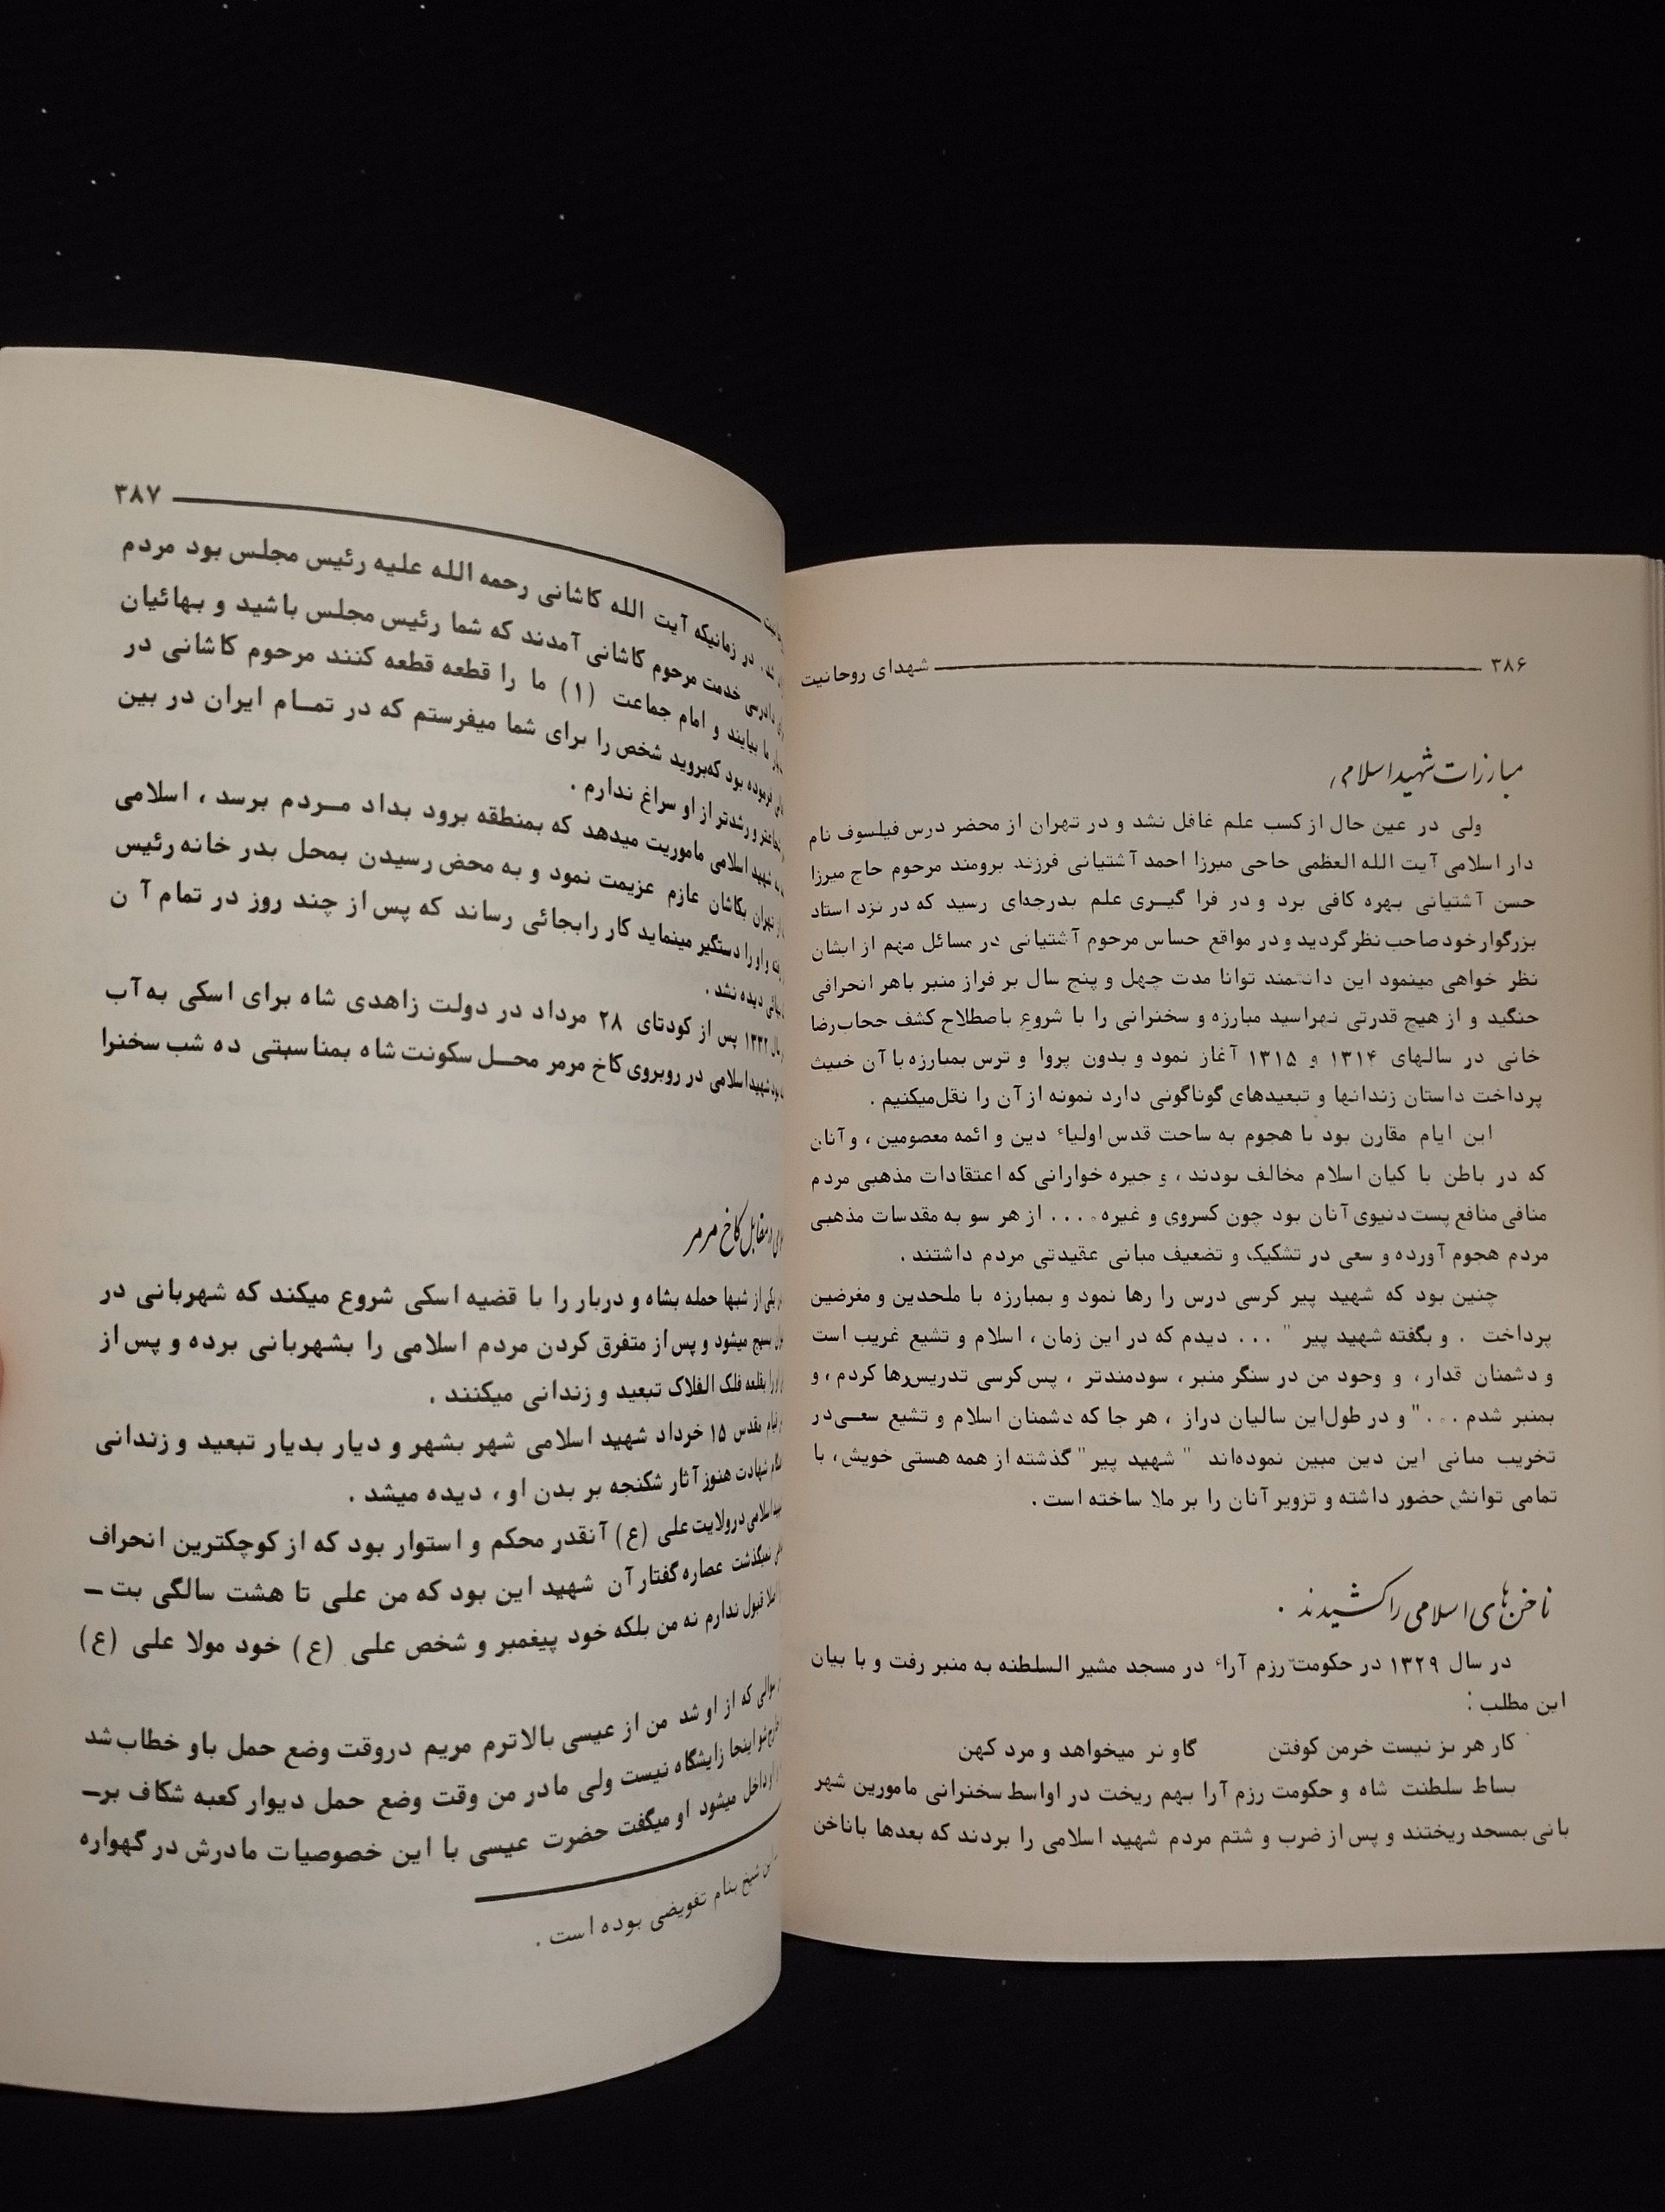 ۳۸۶ شهدای روحانیت
مبارزات شهید اسلامی
ولی در عین حال از کسب علم غافل نشد و در تهران از محضر درس فیلسوف نام
دار اسلامی آیت الله العظمی حاجی میرزا احمد آشتیانی فرزند برومند مرحوم حاج میرزا
حسن آشتیانی بهره کافی برد و در فرا گیـری علم بدرجه‌ای رسید که در نزد استاد
بزرگوار خود صاحب نظر گردید و در مواقع حساس مرحوم آشتیانی در مسائل مهم از ایشان
نظر خواهی مینمود این دانشمند توانا مدت چهل و پنج سال بر فراز منبر باهر انحرافی
جنگید و از هیچ قدرتی نهراسید مبارزه و سخنرانی را با شروع باصطلاح کشف حجاب رضا
خانی در سالهای ۱۳۱۴ و ۱۳۱۵ آغاز نمود و بدون پروا و ترس بمبارزه با آن خبیث
پرداخت داستان زندانها و تبعیدهای گوناگونی دارد نمونه از آن را نقل میکنیم .
این ایام مقارن بود با هجوم به ساحت قدس اولیاء دین و ائمه معصومین ، و آنان
که در باطن با کیان اسلام مخالف بودند ، و جیره خوارانی که اعتقادات مذهبی مردم
منافی منافع پست دنیوی آنان بود چون کسروی و غیره . . . . از هر سو به مقدسات مذهبی
مردم هجوم آورده و سعی در تشکیک و تضعیف مبانی عقیدتی مردم داشتند .
چنین بود که شهید پیر کرسی درس را رها نمود و بمبارزه با ملحدین و مغرضین
پرداخت . و بگفته شهید پیر " . . . دیدم که در این زمان ، اسلام و تشیع غریب است
و دشمنان قدار ، و وجود من در سنگر منبر ، سودمندتر ، پس کرسی تدریس رها کردم ، و
بمنبر شدم . . . " و در طول این سالیان دراز ، هر جا که دشمنان اسلام و تشیع سعـی در
تخریب مبانی این دین مبین نموده‌اند " شهید پیر " گذشته از همه هستی خویش ، با
تمامی توانش حضور داشته و تزویر آنان را بر ملا ساخته است .
ناخن‌های اسلامی را کشیدند .
در سال ۱۳۲۹ در حکومت رزم آراء در مسجد مشیر السلطنه به منبر رفت و با بیان
این مطلب :
کار هر بز نیست خرمن کوفتن گاو نر میخواهد و مرد کهن
بساط سلطنت شاه و حکومت رزم آرا بهم ریخت در اواسط سخنرانی مامورین شهر
بانی بمسجد ریختند و پس از ضرب و شتم مردم شهید اسلامی را بردند که بعدها با ناخن
۳۸۷
در زمانیکه آیت الله کاشانی رحمه الله علیه رئیس مجلس بود مردم
دادرسی خدمت مرحوم کاشانی آمدند که شما رئیس مجلس باشید و بهائیان
ما بیایند و امام جماعت (۱) ما را قطعه قطعه کنند مرحوم کاشانی در
فرموده بود که بروید شخص را برای شما میفرستم که در تمـام ایران در بین
و رشدتر از او سراغ ندارم .
شهید اسلامی ماموریت میدهد که بمنطقه برود بداد مـردم برسد ، اسلامی
تهران بکاشان عازم عزیمت نمود و به محض رسیدن بمحل بدر خانه رئیس
و او را دستگیر مینماید کار را بجائی رساند که پس از چند روز در تمام آن
دیده نشد .
۱۳۳۲ پس از کودتای ۲۸ مرداد در دولت زاهدی شاه برای اسکی به آب
شهید اسلامی در روبروی کاخ مرمر محـل سکونت شاه بمناسبتی ده شب سخنرا
در مقابل کاخ مرمر
یکی از شبها حمله بشاه و دربار را با قضیه اسکی شروع میکند که شهربانی در
بسیج میشود و پس از متفرق کردن مردم اسلامی را بشهربانی برده و پس از
بقلعه فلک الفلاک تبعید و زندانی میکنند .
قیام مقدس ۱۵ خرداد شهید اسلامی شهر بشهر و دیار بدیار تبعید و زندانی
شهادت هنوز آثار شکنجه بر بدن او ، دیده میشد .
اسلامی در ولایت علی (ع) آنقدر محکم و استوار بود که از کوچکترین انحراف
نمیگذشت عصاره گفتار آن شهید این بود که من علی تا هشت سالگی بت ـ
قبول ندارم نه من بلکه خود پیغمبر و شخص علی (ع) خود مولا علی (ع)
سوالی که از او شد من از عیسی بالاترم مریم در وقت وضع حمل باو خطاب شد
اینجا زایشگاه نیست ولی مادر من وقت وضع حمل دیوار کعبه شکاف برـ
داخل میشود او میگفت حضرت عیسی با این خصوصیات مادرش در گهواره
این شیخ بنام تفویضی بوده است .